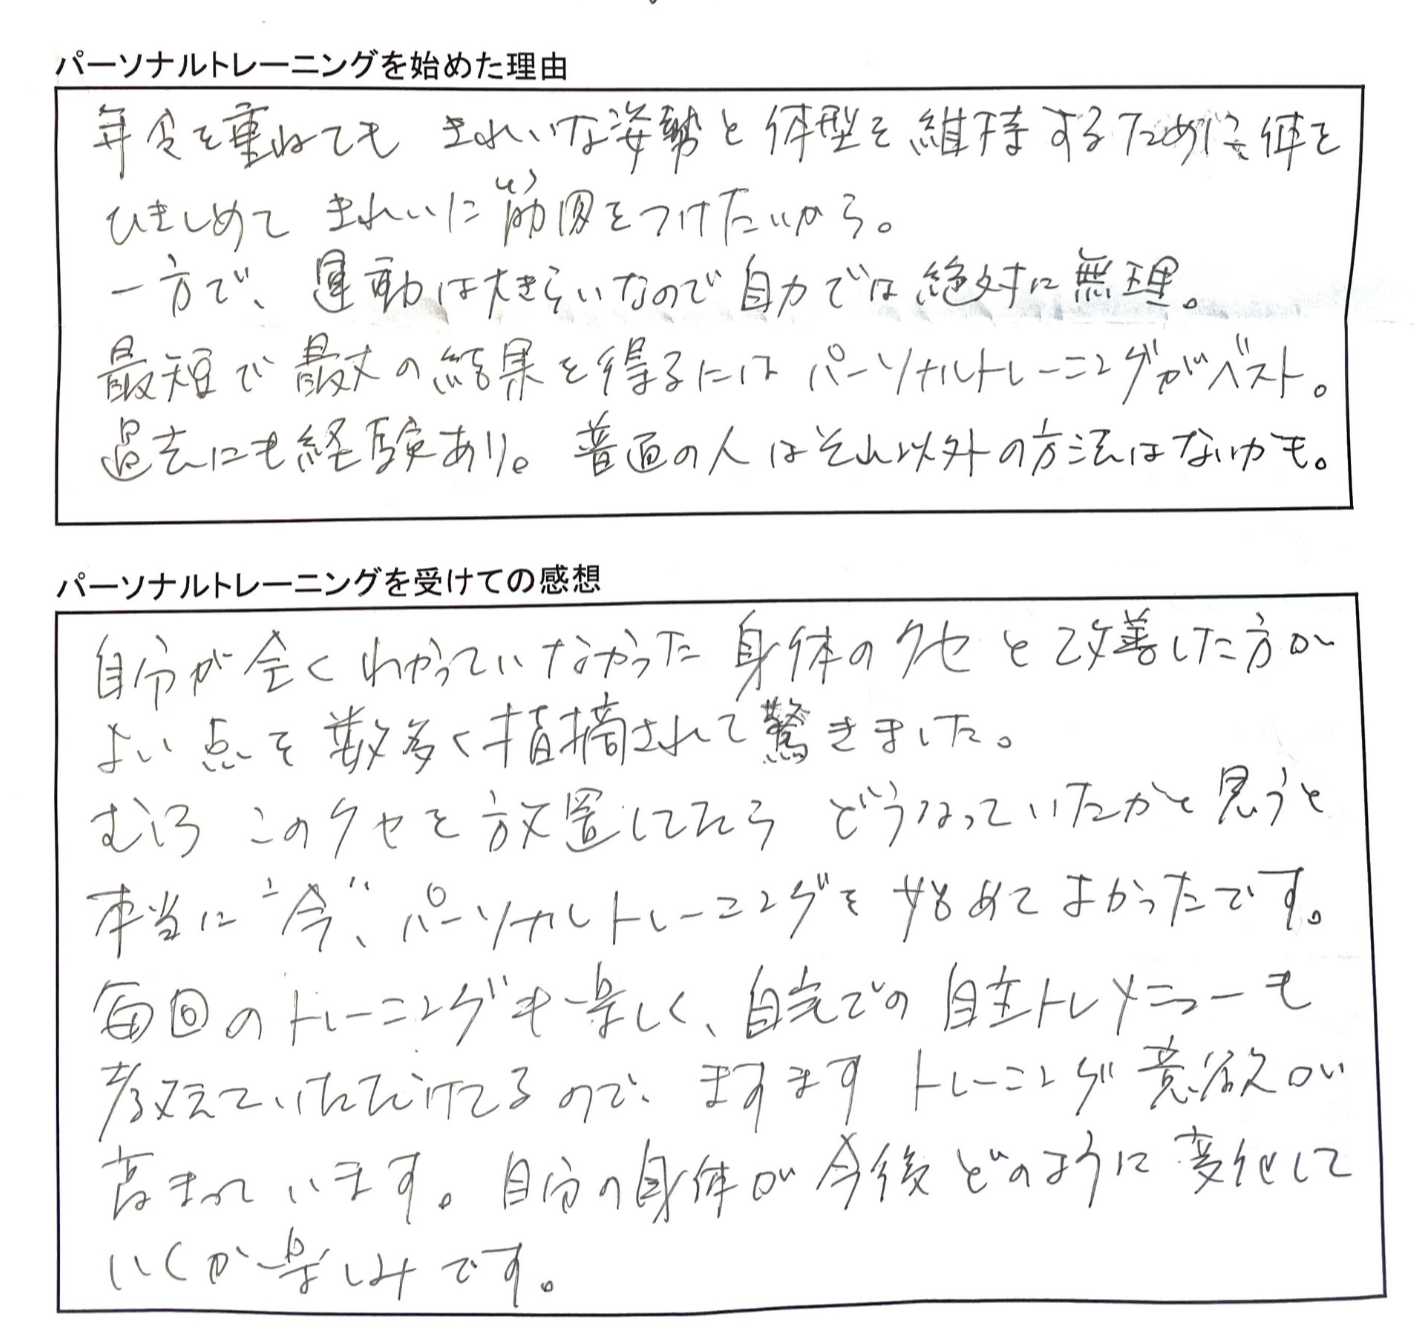 パーソナルトレーニングを始めた理由
年令を重ねても きれいな姿勢と体型を維持するために、体を
ひきしめて きれいに筋肉をつけたいから。
一方で、運動は大きらいなので自力では絶対に無理。
最短で最大の結果を得るにはパーソナルトレーニングがベスト。
過去にも経験あり。普通の人はそれ以外の方法はないかも。
パーソナルトレーニングを受けての感想
自分が全くわかっていなかった身体のクセと改善した方が
よい点を数多く指摘されて驚きました。
むしろ このクセを放置してたら どうなっていたかと思うと
本当に“今”、パーソナルトレーニングを始めてよかったです。
毎回のトレーニングも楽しく、自宅での自主トレメニューも
教えていただけてるので、ますますトレーニング意欲が
高まっています。自分の身体が今後どのように変化して
いくか楽しみです。